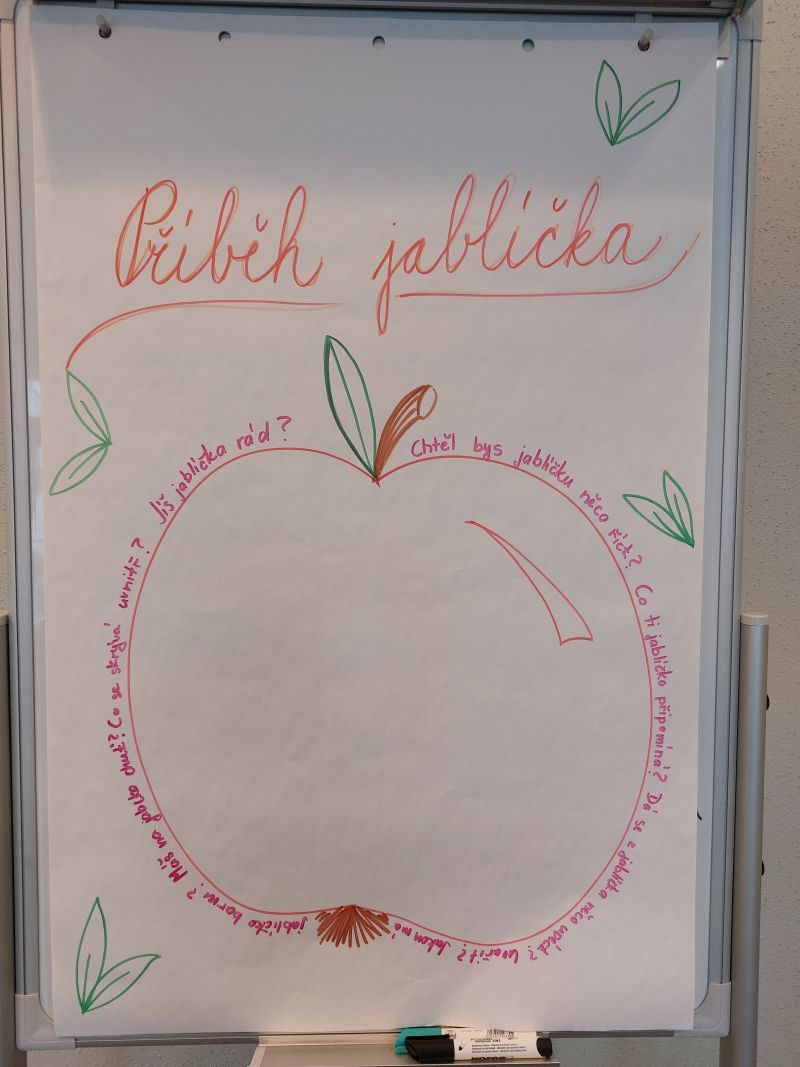 Příběh jablíčka
Chtěl bys jablíčku něco říct? Co ti jablíčko připomíná? Dá se z jablíčka něco upéct? Uvařit? Jakou má jablíčko barvu? Máš na jablko chuť? Co se skrývá uvnitř? Jíš jablíčka rád?
KORES